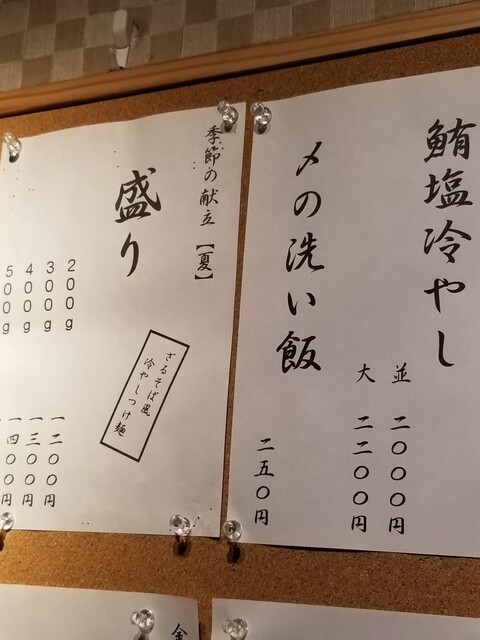 鮪塩冷やし
並 二〇〇〇円
大 二二〇〇円
〆の洗い飯
二五〇円
季節の献立【夏】
盛り
ざるそば風
冷やしつけ麺
200g 一二〇〇円
300g 一三〇〇円
400g 一四〇〇円
500g